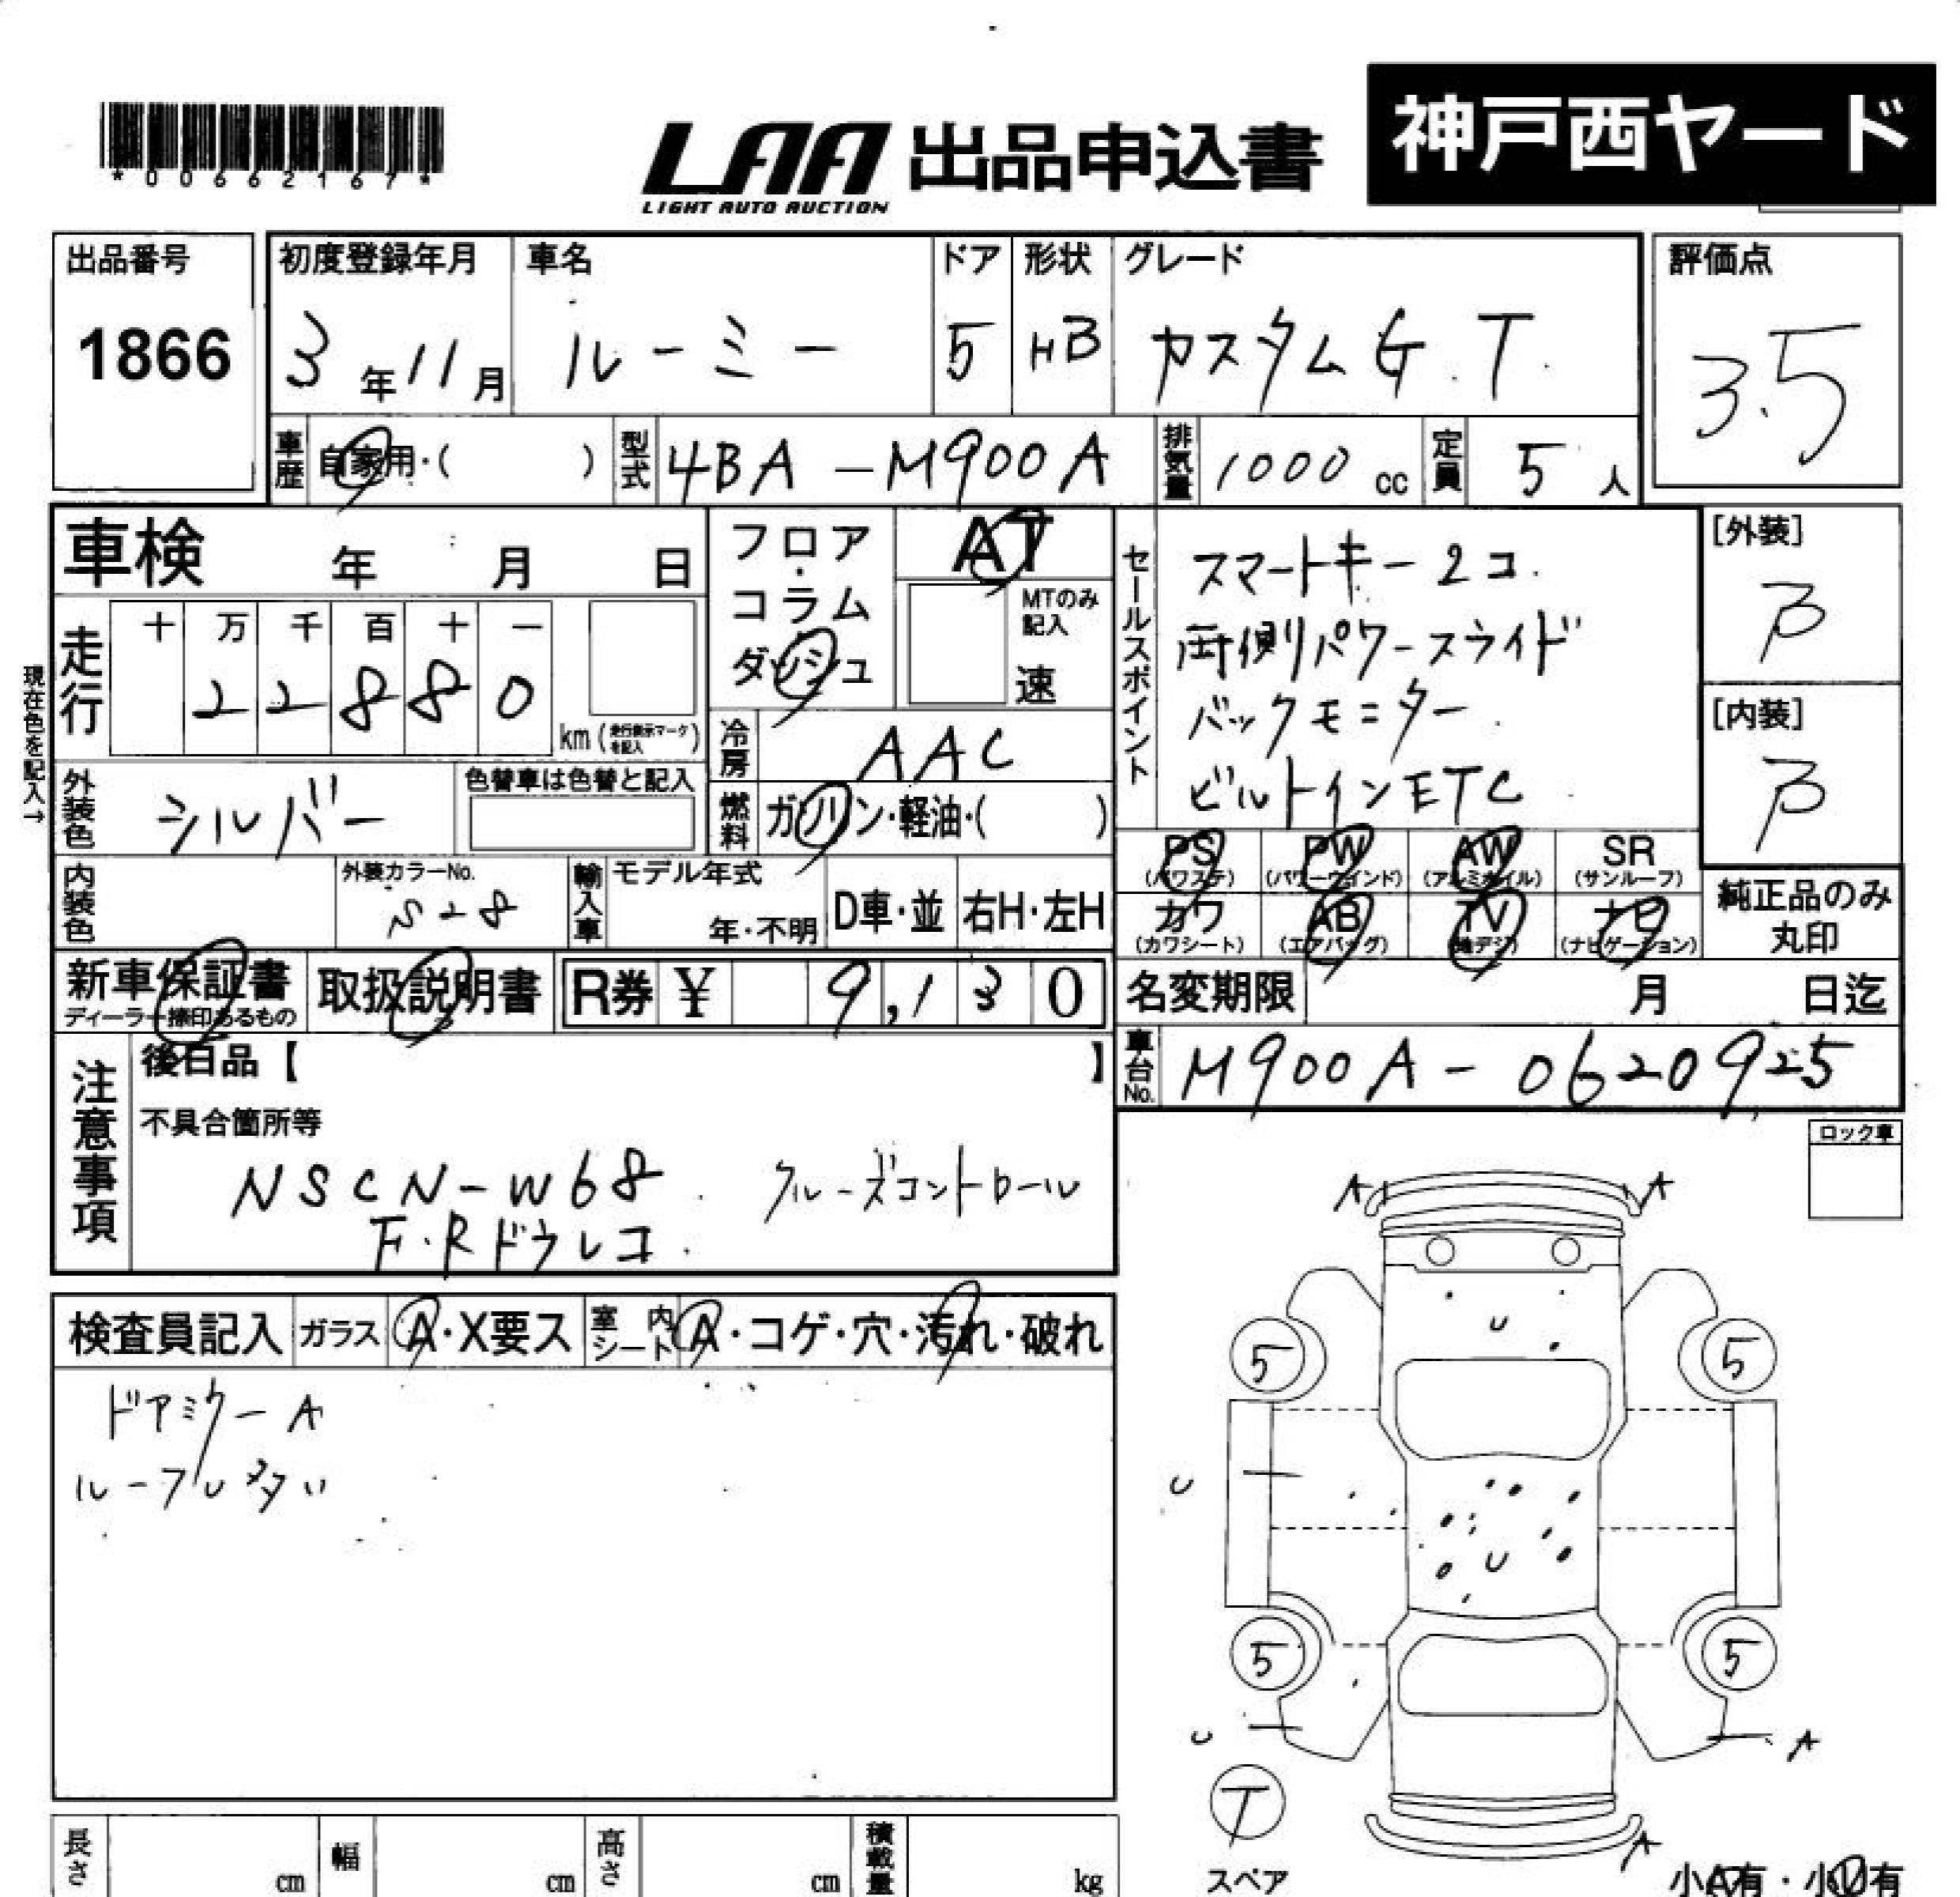 神戸西ヤード
*00662167*
LAA 出品申込書
LIGHT AUTO AUCTION
出品番号
1866
初度登録年月
3年11月
車名
ルーミー
ドア
5
形状
HB
グレード
カスタムG.T.
評価点
3.5
車歴
自家用・( )
型式
4BA-M900A
排気量
1000cc
定員
5人
車検 年 月 日
フロア・コラム・ダッシュ
AT
MTのみ記入
速
セールスポイント
スマートキー2コ.
両側パワースライド
バックモニター.
ビルトインETC
[外装]
B
[内装]
B
現在色を記入→
走行
十 万 千 百 十 一
22880
km(走行表示マークを記入)
冷房
AAC
外装色
シルバー
色替車は色替と記入
燃料
ガソリン・軽油・( )
内装色
外装カラーNo.
S28
輸入車
モデル年式
年・不明
D車・並
右H・左H
PS
(パワステ)
PW
(パワーウインド)
AW
(アルミホイル)
SR
(サンルーフ)
カワ
(カワシート)
AB
(エアバッグ)
TV
(地デジ)
ナビ
(ナビゲーション)
純正品のみ
丸印
新車保証書
ディーラー捺印あるもの
取扱説明書
R券 ¥ 9,130
名変期限 月 日迄
車台No.
M900A-0620925
注意事項
後日品【 】
不具合箇所等
NSCN-W68. クルーズコントロール
F.Rドラレコ.
ロック車
検査員記入
ガラス
A・X要ス
室内シート
A・コゲ・穴・汚れ・破れ
ドアミラーA
A A
U
5 5
U
U
5 5
U A
T
スペア
A
小A有・小U有
長さ cm
幅 cm
高さ cm
積載量 kg